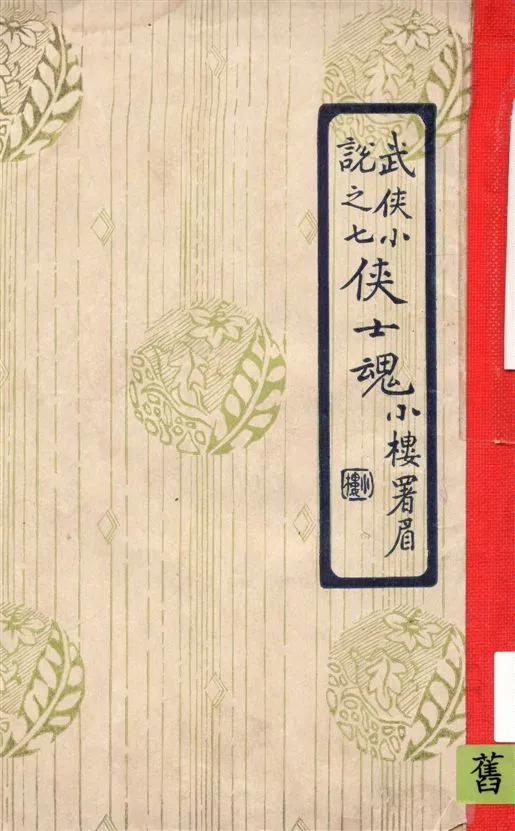 武俠小
說之七
俠士魂
小樓署眉
小樓
舊